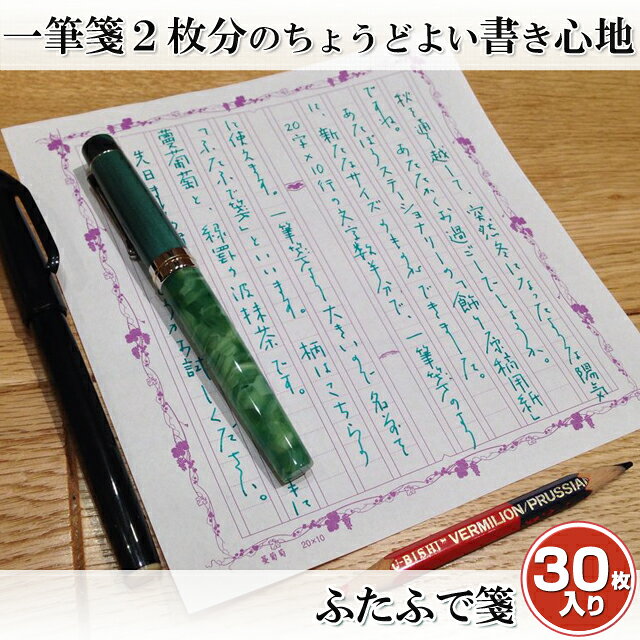 一筆箋２枚分のちょうどよい書き心地
秋を通り越して、突然冬になったような陽気
ですね。あたたかくお過ごしでしょうか。
あたぼうステーショナリーの「飾り原稿用紙」
に、新たなサイズのものができました。
20字×10行の文字数半分で、一筆箋のよう
に使えます。一筆箋より大きいので名づけて
「ふたふで箋」といいます。柄はこちらの
蔓葡萄と、緑罫の波抹茶です。
先日
試しください。
葡萄蔔
20×10
U-BISHI™ VERMILION/PRUSSIA
ふたふで箋
30枚入り